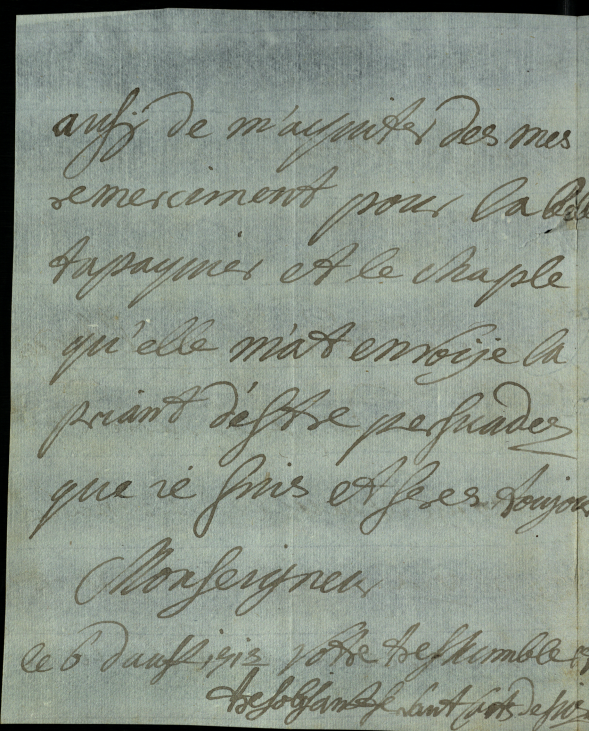 ausij de m'aquiter des mes
remerciment pour la belle
tapaquier et le chaple
qu'elle m'at envoije la
priant d'estre persuadez
que ie suis et seres toujou
Monseigneur
le 6 d'aust 1712 votre tres humble et
tres obsant servant